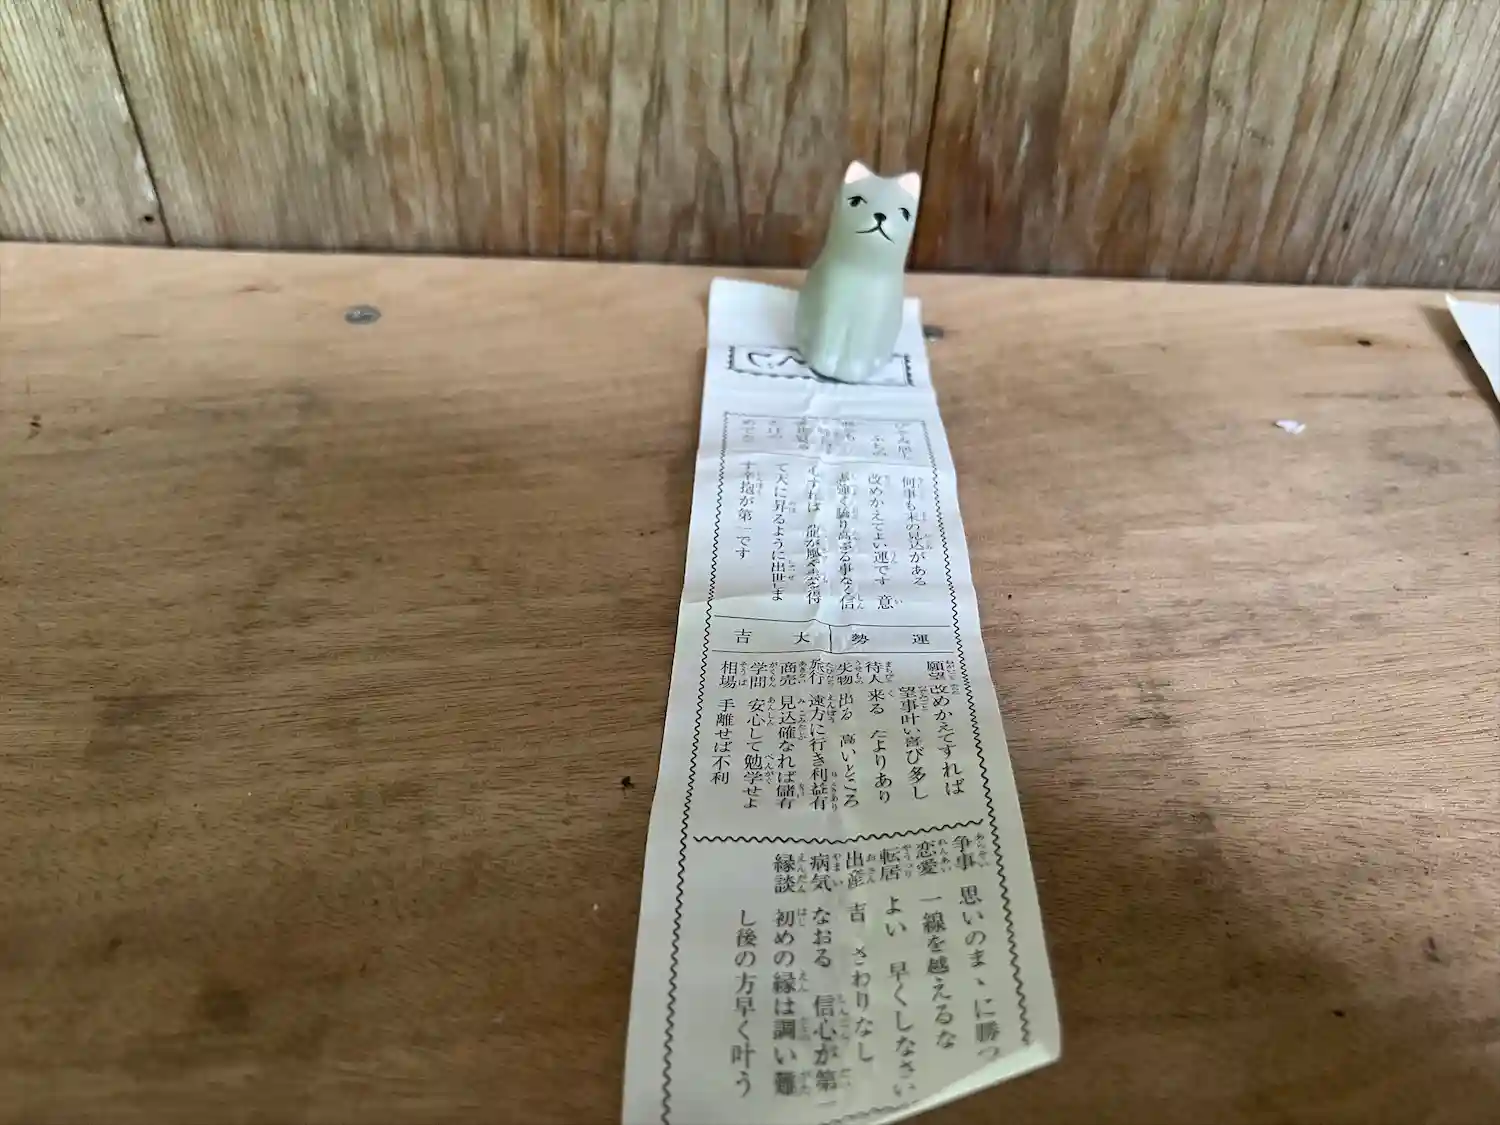 何事も末の見込がある
改めかえてよい運です 意
志強く驕り高ぶる事なく信
心すれば 龍が風や雲を得
て天に昇るように出世しま
す辛抱が第一です
運勢 大吉
願望 改めかえてすれば
望事叶い喜び多し
待人 来る たよりあり
失物 出る 高いところ
旅行 遠方に行き利益有
商売 見込確なれば儲有
学問 安心して勉学せよ
相場 手離せば不利
争事 思いのまゝに勝つ
恋愛 一線を越えるな
転居 よい 早くしなさい
出産 吉 さわりなし
病気 なおる 信心が第一
縁談 初めの縁は調い難
し後の方早く叶う